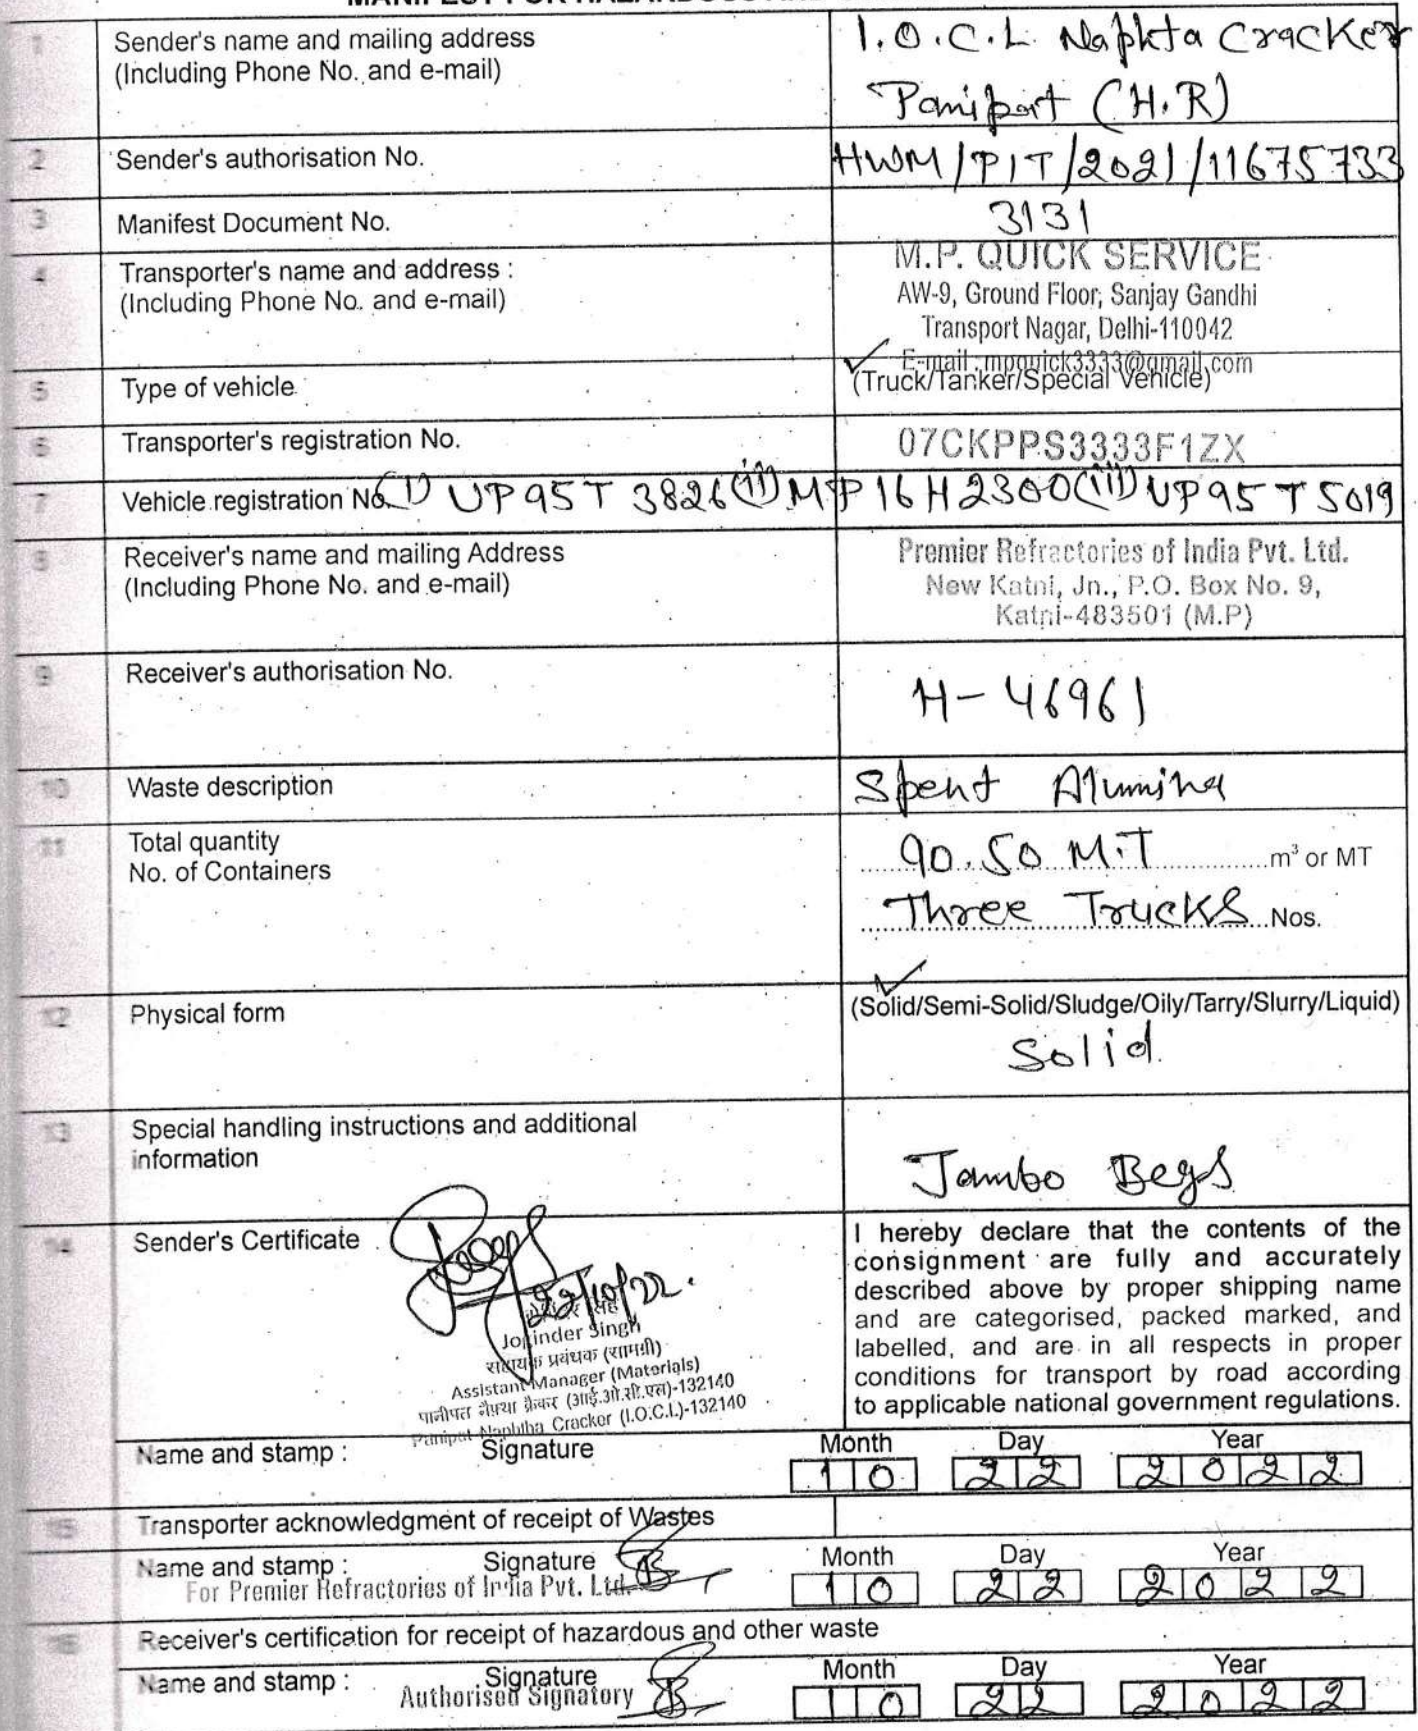 1 Sender's name and mailing address
(Including Phone No. and e-mail)
I.O.C.L Napkta Cracker
Panipat (H.R)
2 Sender's authorisation No.
HWM/PIT/2021/11675733
3 Manifest Document No.
3131
4 Transporter's name and address :
(Including Phone No. and e-mail)
M.P. QUICK SERVICE
AW-9, Ground Floor, Sanjay Gandhi
Transport Nagar, Delhi-110042
E-mail : mpquick3333@gmail.com
5 Type of vehicle
(Truck/Tanker/Special Vehicle)
6 Transporter's registration No.
07CKPPS3333F1ZX
7 Vehicle registration No. (i) UP95T 3826 (ii) MP16H2300 (iii) UP95T5019
8 Receiver's name and mailing Address
(Including Phone No. and e-mail)
Premier Refractories of India Pvt. Ltd.
New Katni, Jn., P.O. Box No. 9,
Katni-483501 (M.P)
9 Receiver's authorisation No.
H-46961
10 Waste description
Spent Alumina
11 Total quantity
No. of Containers
90.50 M.T m³ or MT
Three Trucks Nos.
12 Physical form
(Solid/Semi-Solid/Sludge/Oily/Tarry/Slurry/Liquid)
Solid
13 Special handling instructions and additional
information
Jambo Begs
14 Sender's Certificate
22/10/22.
सिंह
Joginder Singh
सहायक प्रबंधक (सामग्री)
Assistant Manager (Materials)
पानीपत नैफ्था क्रैकर (आई.ओ.सी.एल)-132140
Panipat Naphtha Cracker (I.O.C.L)-132140
I hereby declare that the contents of the
consignment are fully and accurately
described above by proper shipping name
and are categorised, packed marked, and
labelled, and are in all respects in proper
conditions for transport by road according
to applicable national government regulations.
Name and stamp : Signature Month Day Year
10 22 2022
15 Transporter acknowledgment of receipt of Wastes
Name and stamp : Signature Month Day Year
For Premier Refractories of India Pvt. Ltd. 10 22 2022
16 Receiver's certification for receipt of hazardous and other waste
Name and stamp : Signature Month Day Year
Authorised Signatory 10 22 2022